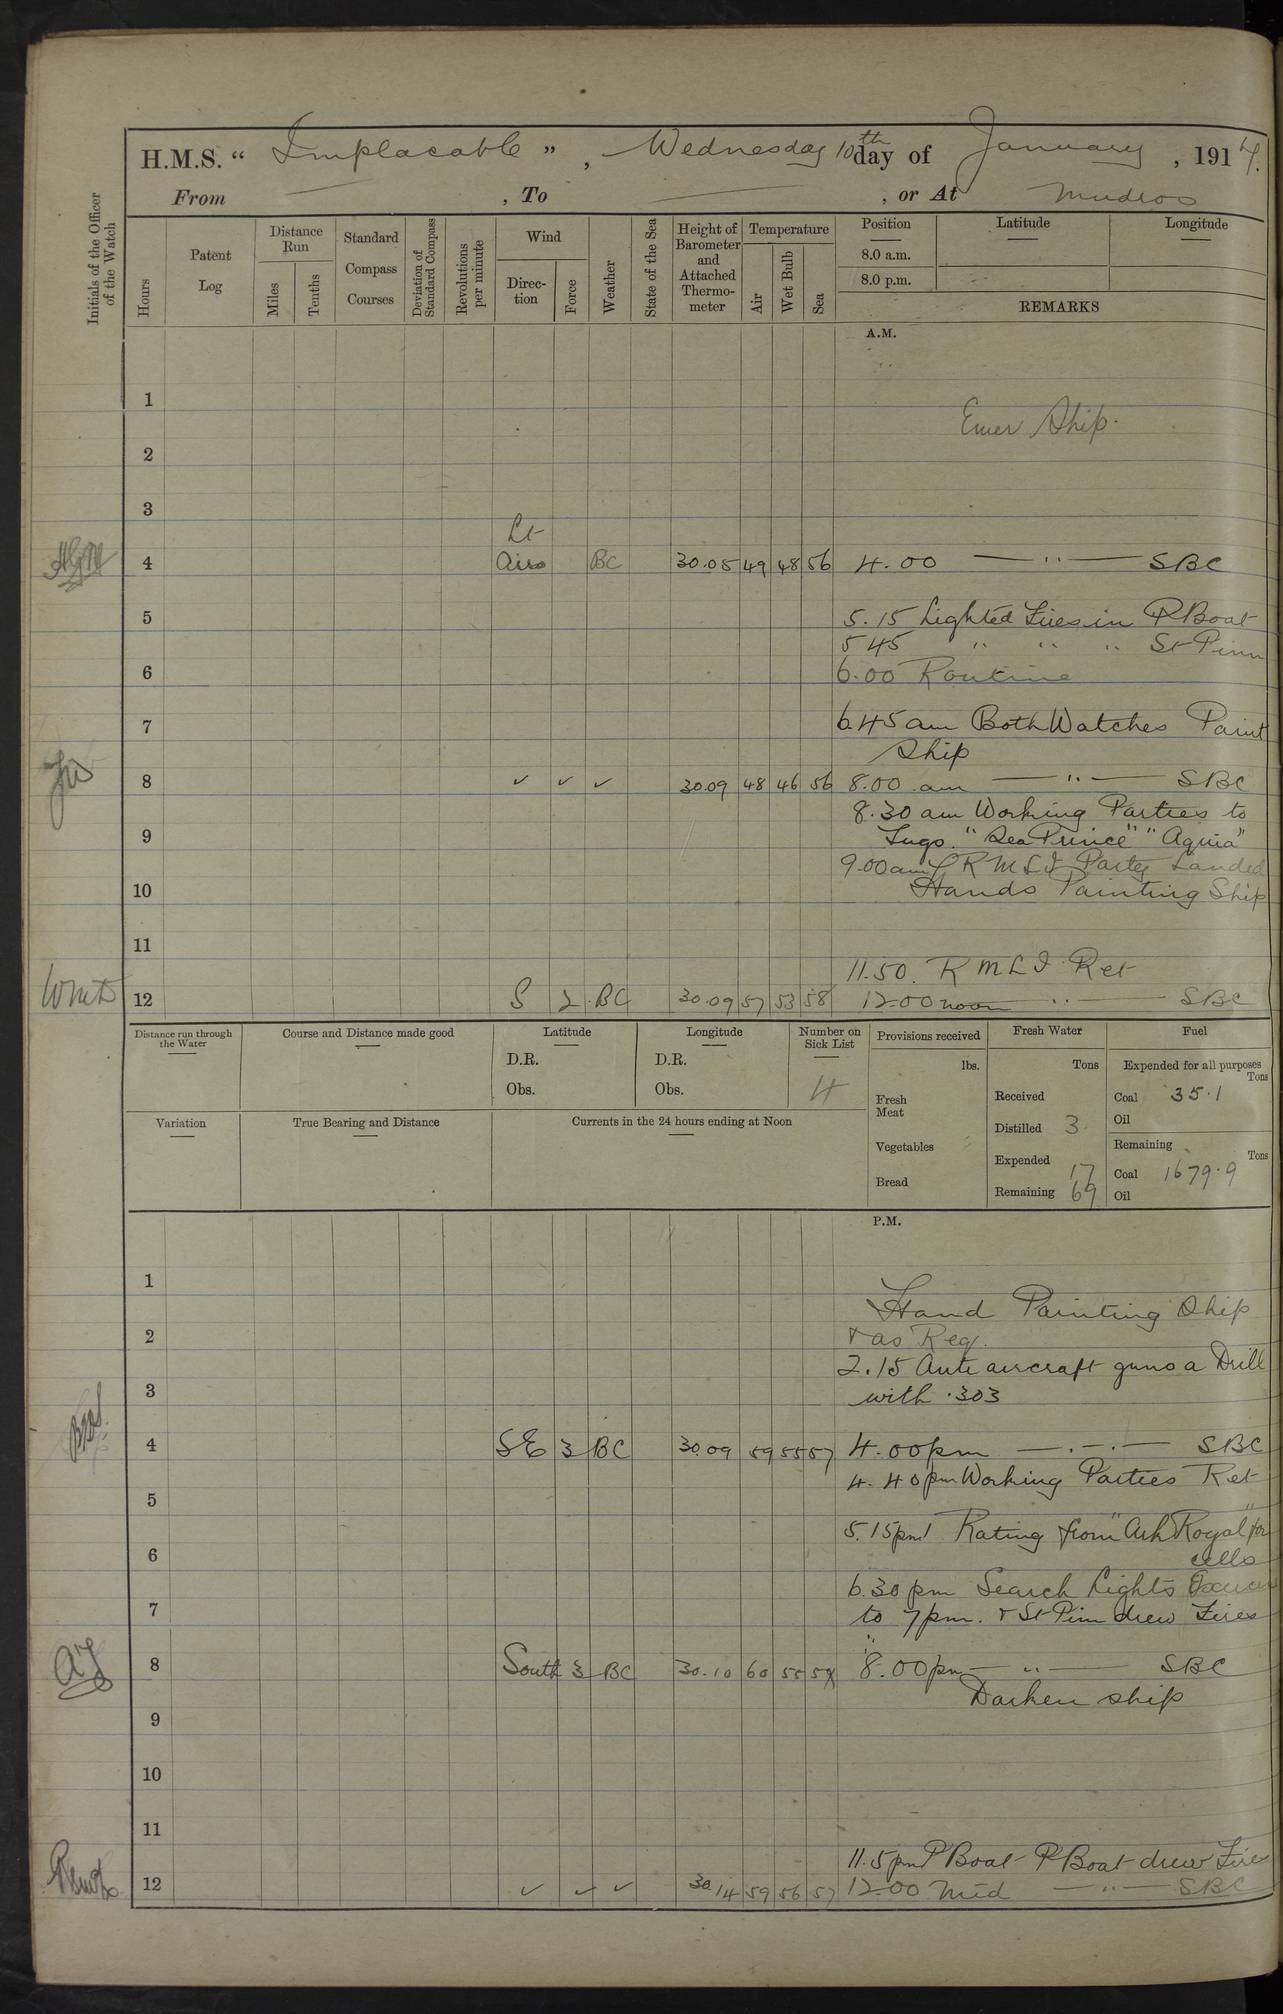 H.M.S. “ Implacable ” , Wednesday 10th day of January , 1917.
From — , To — , or At Mudros
Initials of the Officer of the Watch
Hours
Patent Log
Distance Run
Miles
Tenths
Standard Compass Courses
Deviation of Standard Compass
Revolutions per minute
Wind
Direc-tion
Force
Weather
State of the Sea
Height of Barometer and Attached Thermo-meter
Temperature
Air
Wet Bulb
Sea
Position
8.0 a.m.
8.0 p.m.
Latitude
Longitude
REMARKS
A.M.
1
Emer Ship.
2
3
Lt
4 Airs BC 30.05 49 48 56 4.00 — " — SBC
5 5.15 Lighted Fires in P Boat
5 45 " " " St Pinn
6 6.00 Routine
7 6.45 am Both Watches Paint
Ship
8 ✓ ✓ ✓ 30.09 48 46 56 8.00 am — " — SBC
8.30 am Working Parties to
9 Tugs. "Sea Prince" "Aquia"
9.00 am RMLI Party Landed
10 Hands Painting Ship
11
11.50. RMLI Ret
12 S 2 BC 30.09 57 53 58 12.00 noon — " — SBC
Distance run through the Water
Course and Distance made good
Latitude
D.R.
Obs.
Longitude
D.R.
Obs.
Number on Sick List
4
Provisions received
lbs.
Fresh Meat
Vegetables
Bread
Fresh Water
Tons
Received
Distilled 3
Expended 17
Remaining 69
Fuel
Expended for all purposes
Tons
Coal 35.1
Oil
Remaining
Tons
Coal 1679.9
Oil
Variation
True Bearing and Distance
Currents in the 24 hours ending at Noon
P.M.
1
Hand Painting Ship
2 & as Req.
2.15 Anti aircraft guns a Drill
3 with .303
4 SE 3 BC 30.09 59 55 57 4.00 pm — . — . — SBC
4.40 pm Working Parties Ret
5
5.15 pm 1 Rating from "Ark Royal" for
6 cells
6.30 pm Search Lights
7 to 7 pm. & St Pinn drew Fires
8 South 3 BC 30.10 60 55 8.00 pm — " — SBC
Darken ship
9
10
11
11.5 pm P Boat P Boat drew Fires
12 ✓ ✓ ✓ 30.14 59 56 57 12.00 Mid — " — SBC